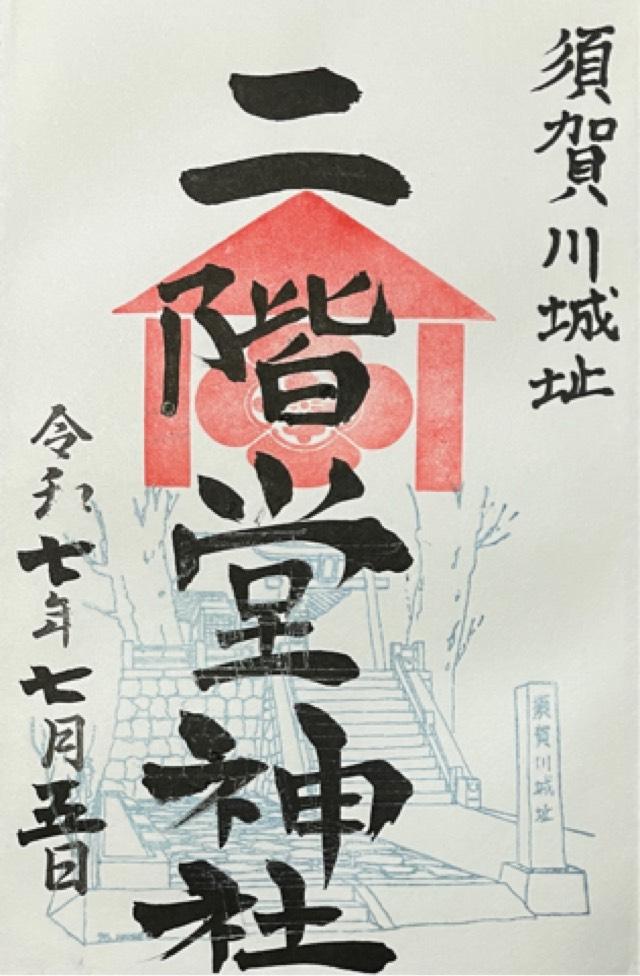 須賀川城址
二階堂神社
令和七年七月五日
須賀川城址